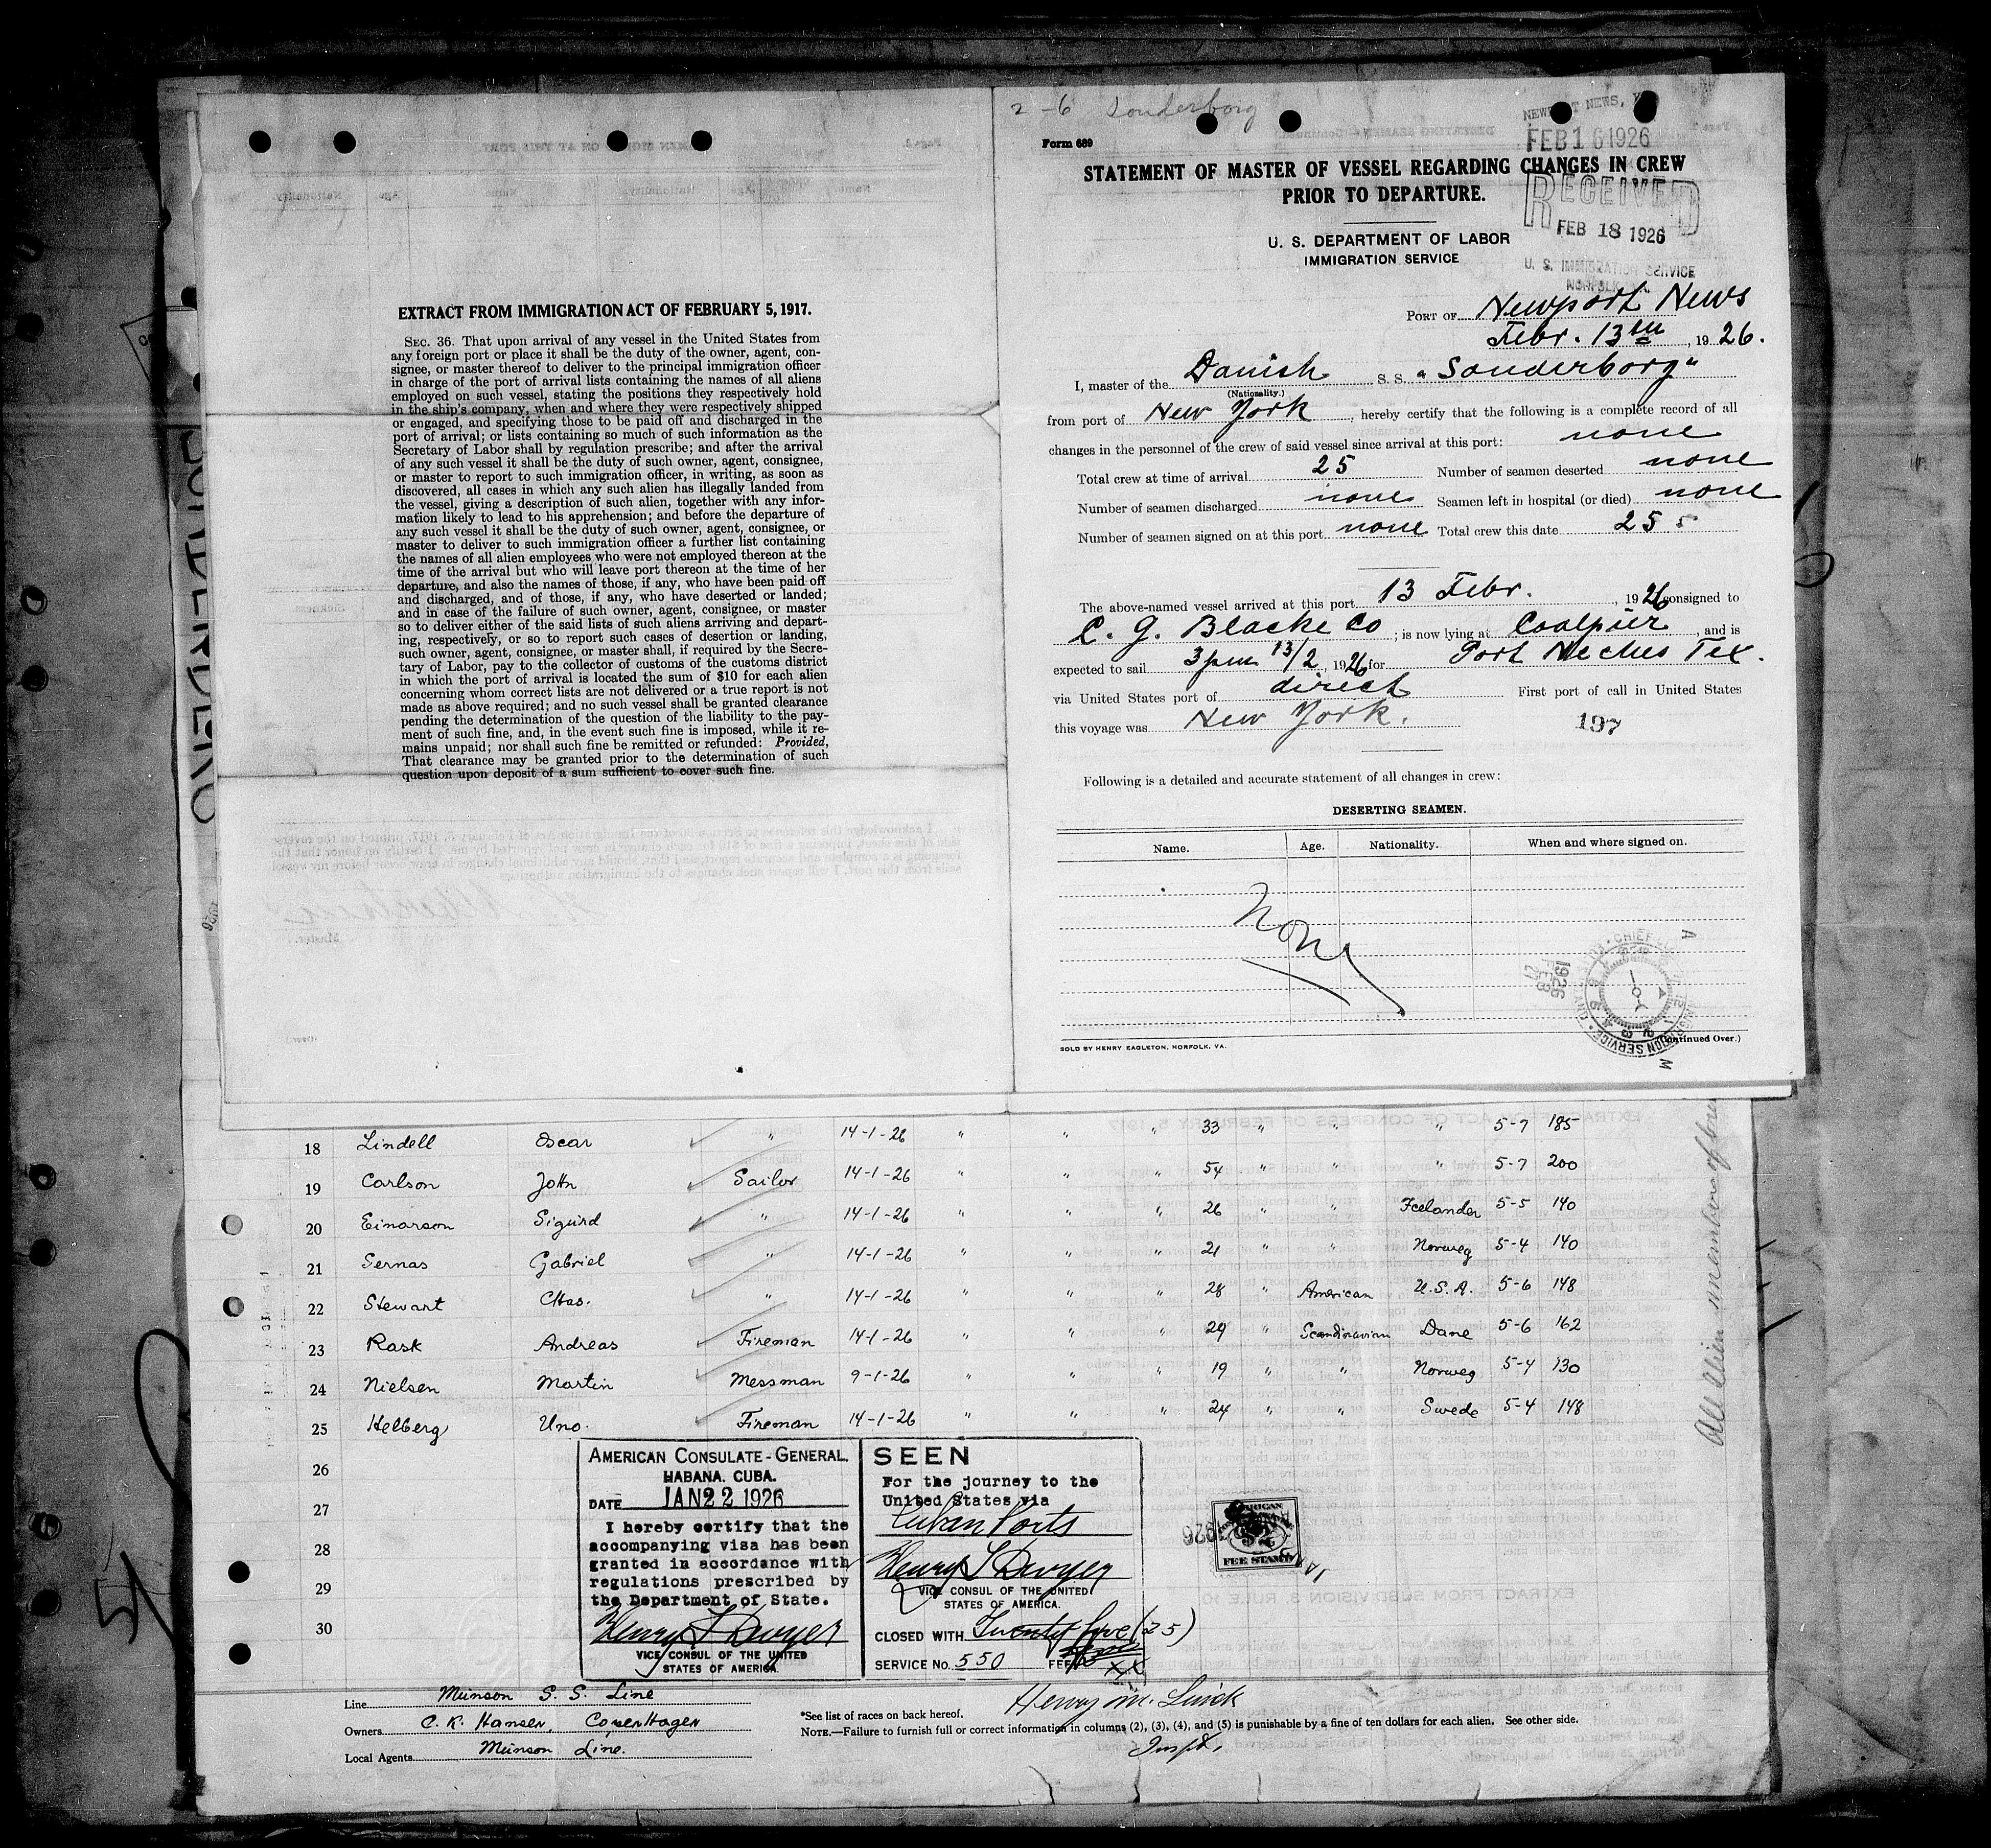 EXTRACT FROM IMMIGRATION ACT OF FEBRUARY 5, 1917.
SEC. 36. That upon arrival of any vessel in the United States from
any foreign port or place it shall be the duty of the owner, agent, con-
signee, or master thereof to deliver to the principal immigration officer
in charge of the port of arrival lists containing the names of all aliens
employed on such vessel, stating the positions they respectively hold
in the ship's company, when and where they were respectively shipped
or engaged, and specifying those to be paid off and discharged in the
port of arrival; or lists containing so much of such information as the
Secretary of Labor shall by regulation prescribe; and after the arrival
of any such vessel it shall be the duty of such owner, agent, consignee,
or master to report to such immigration officer, in writing, as soon as
discovered, all cases in which any such alien has illegally landed from
the vessel, giving a description of such alien, together with any infor-
mation likely to lead to his apprehension; and before the departure of
any such vessel it shall be the duty of such owner, agent, consignee, or
master to deliver to such immigration officer a further list containing
the names of all alien employees who were not employed thereon at the
time of the arrival but who will leave port thereon at the time of her
departure, and also the names of those, if any, who have been paid off
and discharged, and of those, if any, who have deserted or landed;
and in case of the failure of such owner, agent, consignee, or master
so to deliver either of the said lists of such aliens arriving and depart-
ing, respectively, or so to report such cases of desertion or landing,
such owner, agent, consignee, or master shall, if required by the Secre-
tary of Labor, pay to the collector of customs of the customs district
in which the port of arrival is located the sum of $10 for each alien
concerning whom correct lists are not delivered or a true report is not
made as above required; and no such vessel shall be granted clearance
pending the determination of the question of the liability to the pay-
ment of such fine, and, in the event such fine is imposed, while it re-
mains unpaid; nor shall such fine be remitted or refunded: Provided,
That clearance may be granted prior to the determination of such
question upon deposit of a sum sufficient to cover such fine.
2-6 Sonderborg
Form 689
NEWPORT NEWS, VA
FEB 16 1926
STATEMENT OF MASTER OF VESSEL REGARDING CHANGES IN CREW
PRIOR TO DEPARTURE.
RECEIVED
FEB 18 1926
U. S. IMMIGRATION SERVICE
NORFOLK, VA.
U. S. DEPARTMENT OF LABOR
IMMIGRATION SERVICE
PORT OF Newport News
Febr. 13th, 1926.
I, master of the Danish S. S. "Sonderborg"
(Nationality.)
from port of New York, hereby certify that the following is a complete record of all
changes in the personnel of the crew of said vessel since arrival at this port: none
Total crew at time of arrival 25 Number of seamen deserted none
Number of seamen discharged none Seamen left in hospital (or died) none
Number of seamen signed on at this port none Total crew this date 25 5
The above-named vessel arrived at this port 13 Febr., 1926 consigned to
C. G. Blacke Co; is now lying at Coalpier, and is
expected to sail 3 pm 13/2, 1926 for Port Neches Tex.
via United States port of direct First port of call in United States
this voyage was New York. 197
Following is a detailed and accurate statement of all changes in crew:
DESERTING SEAMEN.
Name. Age. Nationality. When and where signed on.
None
1926 FEB
SOLD BY HENRY EAGLETON, NORFOLK, VA. (Continued Over.)
18 Lindell Oscar " 14-1-26 " " " 33 " " " 5-7 185
19 Carlson John Sailor 14-1-26 " " " 54 " " " 5-7 200
20 Einarson Sigurd " 14-1-26 " " " 26 " " Icelander 5-5 140
21 Sernas Gabriel " 14-1-26 " " " 21 " " Norweg 5-4 140
22 Stewart Chas. " 14-1-26 " " " 28 " American U.S.A. 5-6 148
23 Rask Andreas Fireman 14-1-26 " " " 29 " Scandinavian Dane 5-6 162
24 Nielsen Martin Messman 9-1-26 " " " 19 " " Norweg 5-4 130
25 Helberg Uno. Fireman 14-1-26 " " " 24 " " Swede 5-4 148
26
27
28
29
30
AMERICAN CONSULATE-GENERAL.
HABANA, CUBA.
DATE JAN 22 1926
I hereby certify that the
accompanying visa has been
granted in accordance with
regulations prescribed by
the Department of State.
Henry T Dwyer
VICE CONSUL OF THE UNITED
STATES OF AMERICA.
SEEN
For the journey to the
United States via
Cuban Ports
Henry T Dwyer
VICE CONSUL OF THE UNITED
STATES OF AMERICA.
CLOSED WITH Twenty five (25)
SERVICE No. 550 FEE
FEE STAMP
All alien members of
Line Munson S. S. Line
Owners C. K. Hansen, Copenhagen
Local Agents Munson Line.
*See list of races on back hereof.
Henry M.
NOTE.—Failure to furnish full or correct information in columns (2), (3), (4), and (5) is punishable by a fine of ten dollars for each alien. See other side.
Inspt.